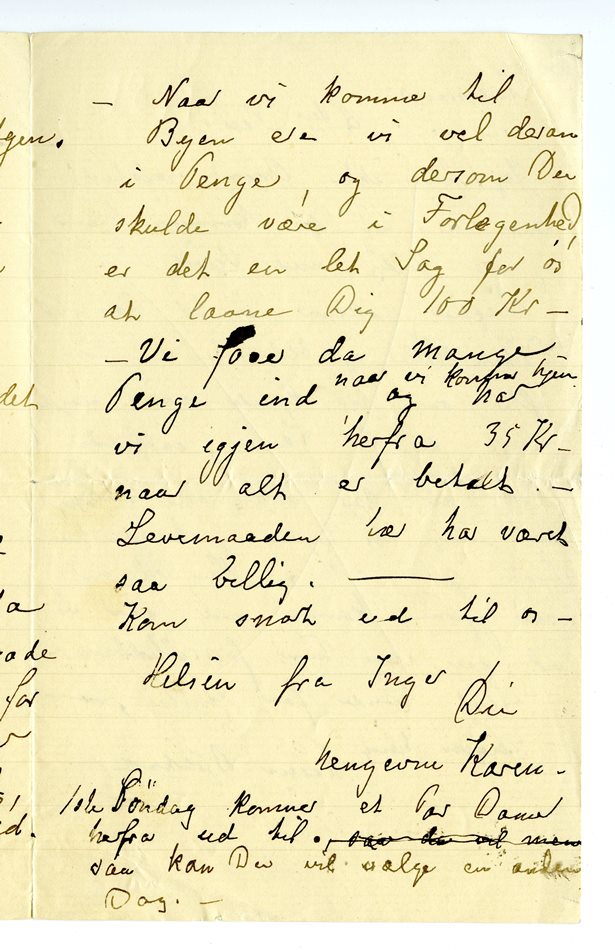 — Naar vi komme til
Byen ere vi vel deran
i Penge, og dersom Du
skulde være i Forlegenhed,
er det en let Sag for os
at laane Dig 100 Kr —
— Vi faae da mange
Penge ind naar vi komme hjem
og har
vi igjen herfra 35 Kr —
naar alt er betalt. —
Levemaaden her har været
saa billig. —
Kom snart ud til os —
Hilsen fra Inger
Din
hengivne Karen.
1ste Söndag kommer et Par Damer
herfra ud til os, saa du vil men
saa kan Du vil vælge en anden
Dag. —
gen.
det
a
ade
for
d.